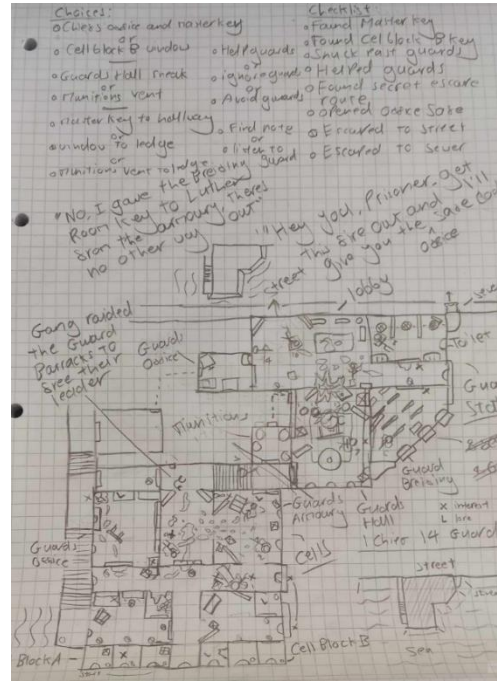 Choices:
o Chiefs office and master key
or
o Cell block B window
o Guards Hall sneak
or
o Munitions vent
o Master key to hallway
or
o window to ledge
or
o Munitions vent to ledge
o Help guards
or
o ignore guards
or
o Avoid guards
o Find note
or
o listen to guard
Checklist
o Found Master key
o Found Cell block B key
o Snuck past guards
o Helped guards
o Found secret escape route
o opened office safe
o Escaped to street
o Escaped to sewer
"No, I gave the Briefing
Room Key to Luther
from the armoury. Theres
no other way out"
"Hey you, Prisoner, get
this fire out and I'll
give you the safe
office
Street
lobby
Toilet
Gang raided
the Guard
Barracks to
free their
leader
Guards
Office
Munitions
Guard
Briefing
Guards
Armoury
Guards
Hall
x interest
L
1 Chief 14 Guard
Cells
Guards
Office
Street
Sea
Block A
Cell Block B